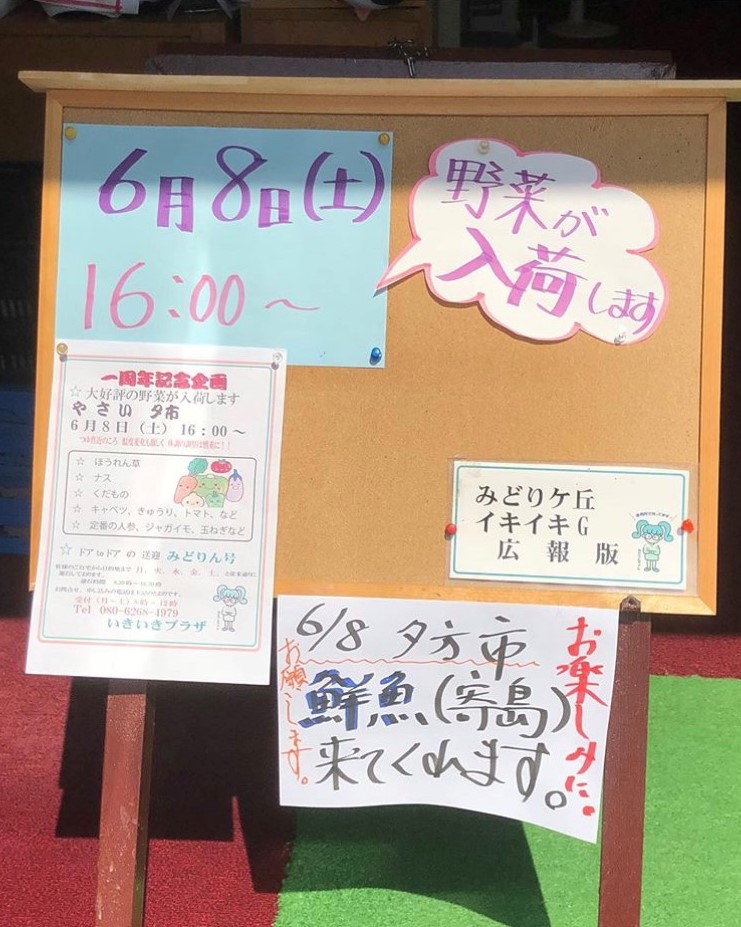 6月8日(土)
16:00～
野菜が
入荷します
一周年記念企画
☆大好評の野菜が入荷します
やさい 夕市
6月8日(土)16:00～
☆ ほうれん草
☆ ナス
☆ くだもの
☆ キャベツ、きゅうり、トマト、など
☆ 定番の人参、ジャガイモ、玉ねぎなど
☆ ドア to ドア の 送迎 みどりん号
受付(月～土)8時～12時
Tel 080-6268-4979
いきいきプラザ
みどりケ丘
イキイキG
広報版
6/8 夕方市
鮮魚(寄島)
来てくれます。
お楽しみに。
お願いします。